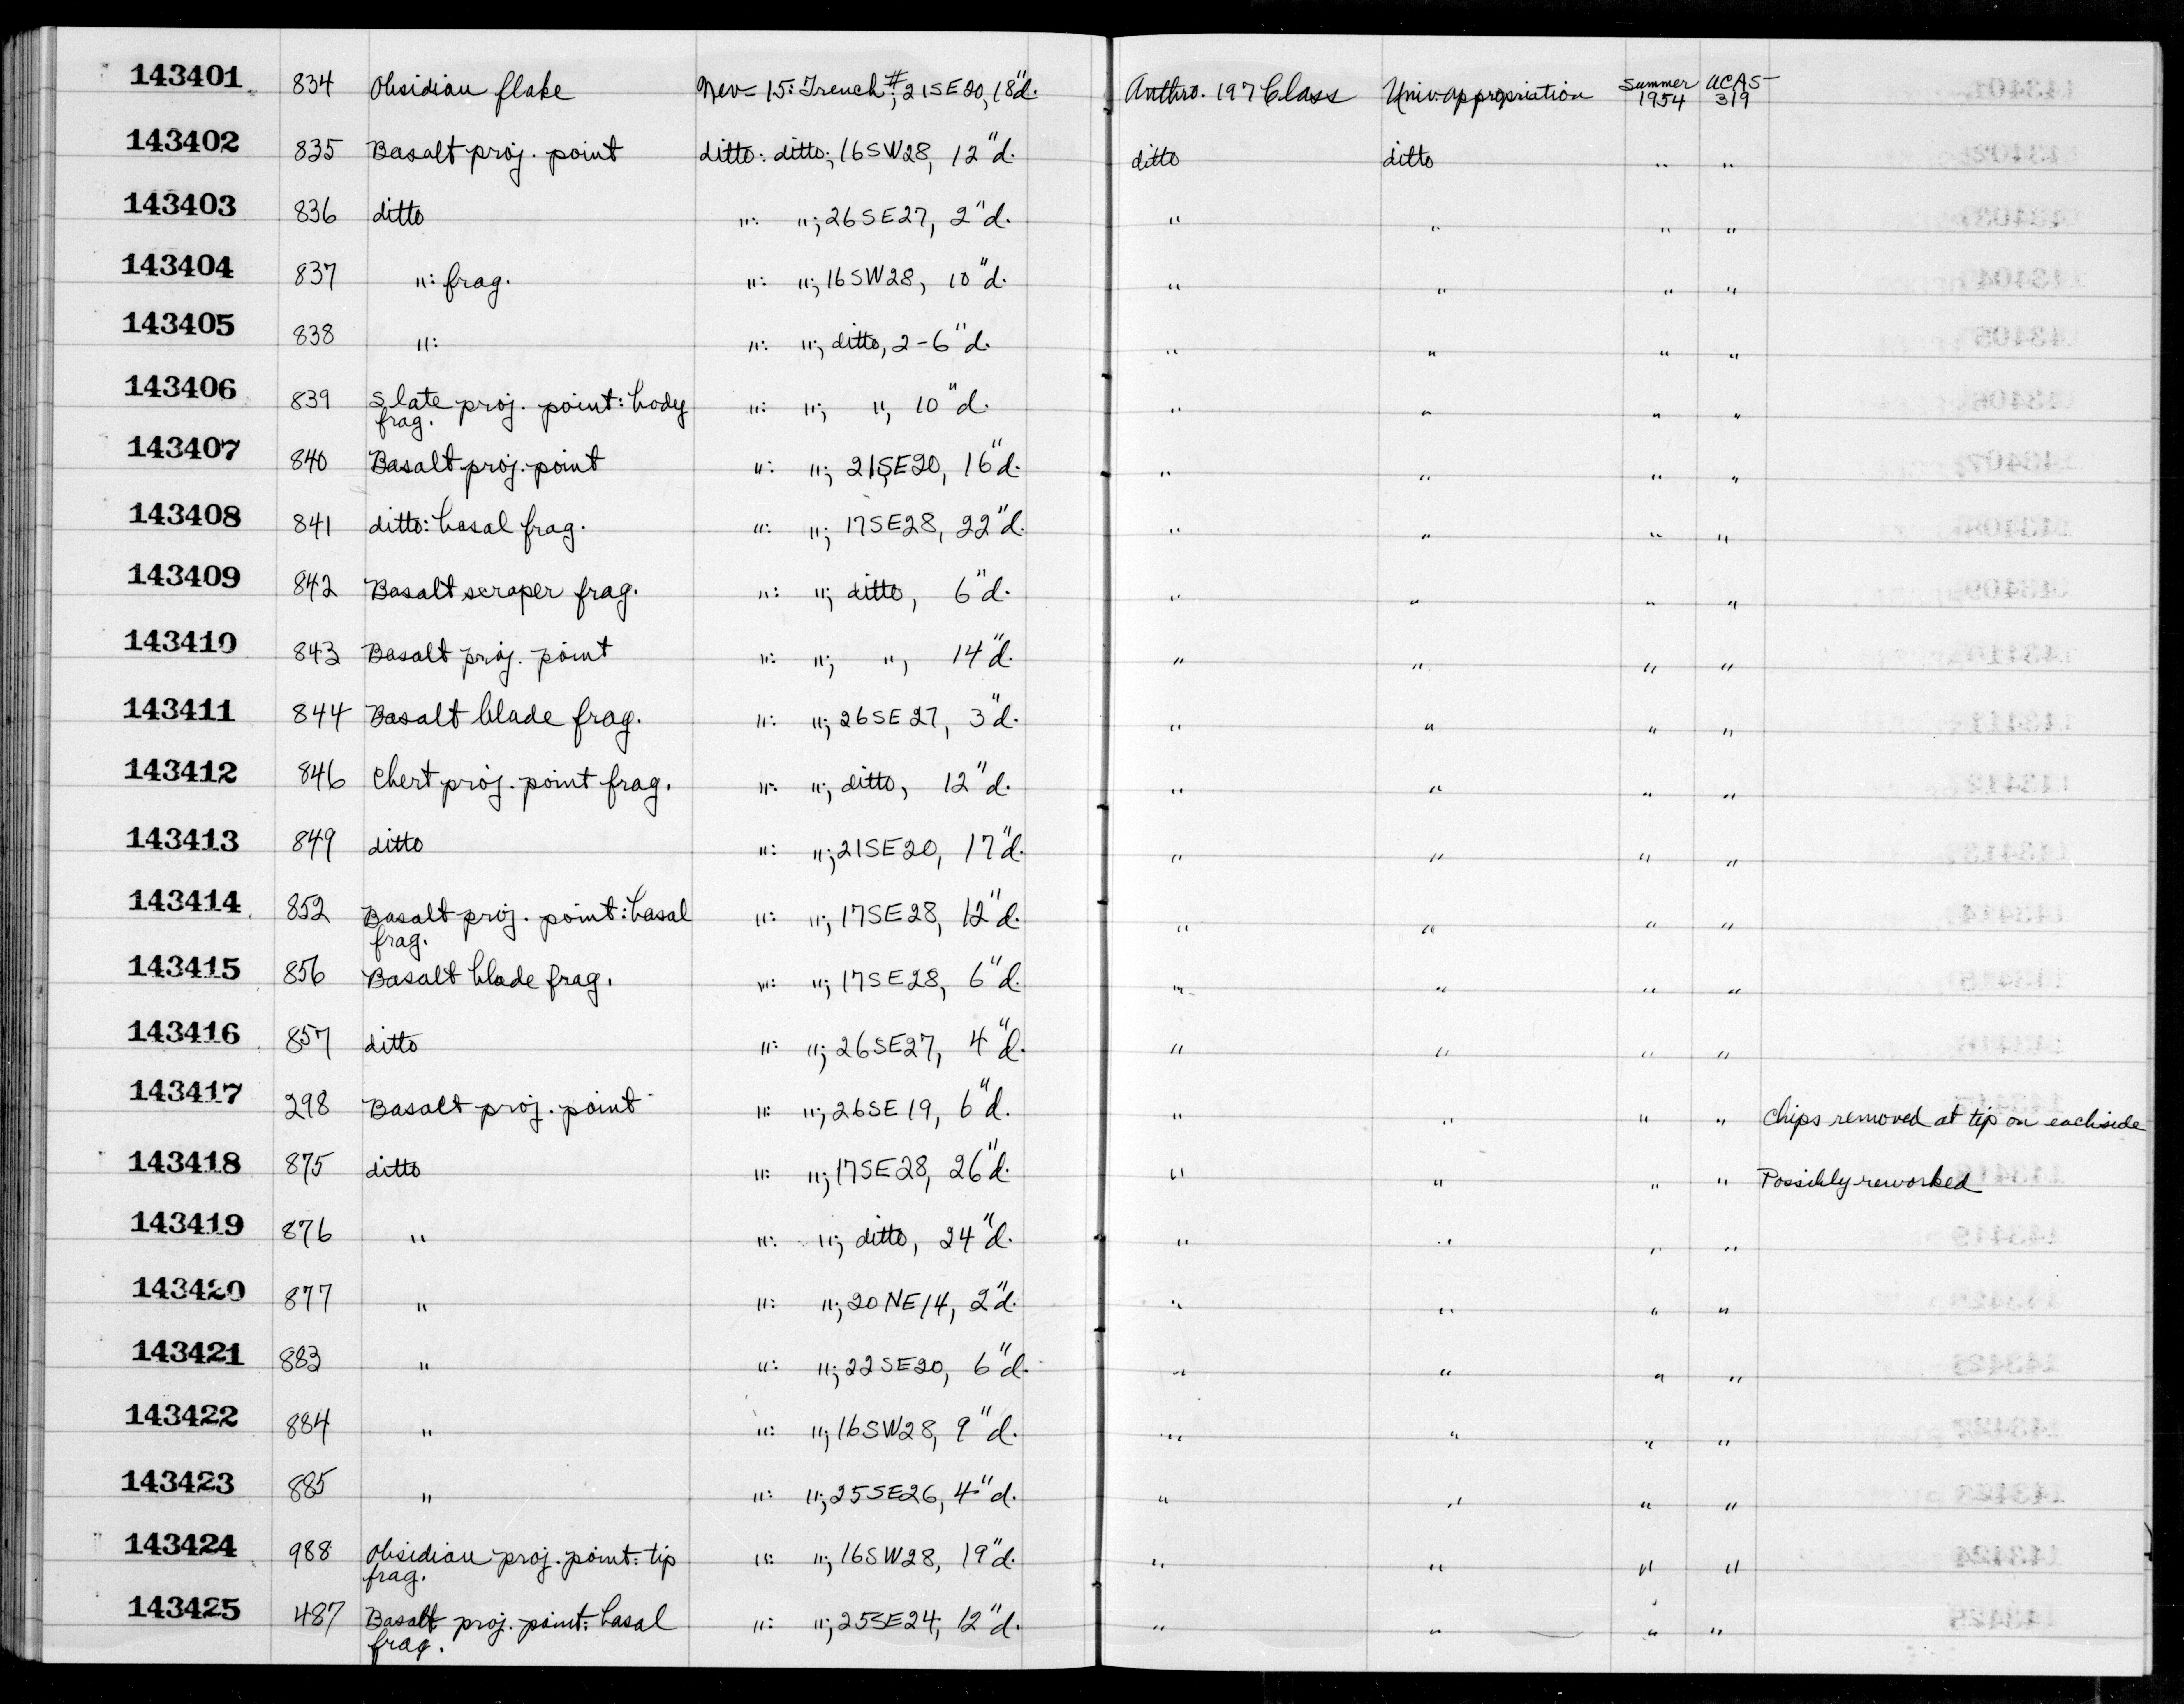 143401 834 Obsidian flake Nev-15: Trench #; 21SE20, 18"d. Anthro. 197 Class Univ. appropriation Summer 1954 UCAS-319
143402 835 Basalt proj. point ditto: ditto; 16SW28, 12"d. ditto ditto " "
143403 836 ditto ": "; 26SE27, 2"d. " " " "
143404 837 ": frag. ": "; 16SW28, 10"d. " " " "
143405 838 ": ": "; ditto, 2-6"d. " " " "
143406 839 Slate proj. point: body frag. ": "; ", 10"d. " " " "
143407 840 Basalt proj. point ": "; 21SE20, 16"d. " " " "
143408 841 ditto: basal frag. ": "; 17SE28, 22"d. " " " "
143409 842 Basalt scraper frag. ": "; ditto, 6"d. " " " "
143410 843 Basalt proj. point ": "; ", 14"d. " " " "
143411 844 Basalt blade frag. ": "; 26SE27, 3"d. " " " "
143412 846 Chert proj. point frag. ": "; ditto, 12"d. " " " "
143413 849 ditto ": "; 21SE20, 17"d. " " " "
143414 852 Basalt proj. point: basal frag. ": "; 17SE28, 12"d. " " " "
143415 856 Basalt blade frag. ": "; 17SE28, 6"d. " " " "
143416 857 ditto ": "; 26SE27, 4"d. " " " "
143417 298 Basalt proj. point ": "; 26SE19, 6"d. " " " " Chips removed at tip on each side
143418 875 ditto ": "; 17SE28, 26"d. " " " " Possibly reworked
143419 876 " ": "; ditto, 24"d. " " " "
143420 877 " ": "; 20NE14, 2"d. " " " "
143421 883 " ": "; 22SE20, 6"d. " " " "
143422 884 " ": "; 16SW28, 9"d. " " " "
143423 885 " ": "; 25SE26, 4"d. " " " "
143424 988 Obsidian proj. point: tip frag. ": "; 16SW28, 19"d. " " " "
143425 487 Basalt proj. point: basal frag. ": "; 25SE24, 12"d. " " " "